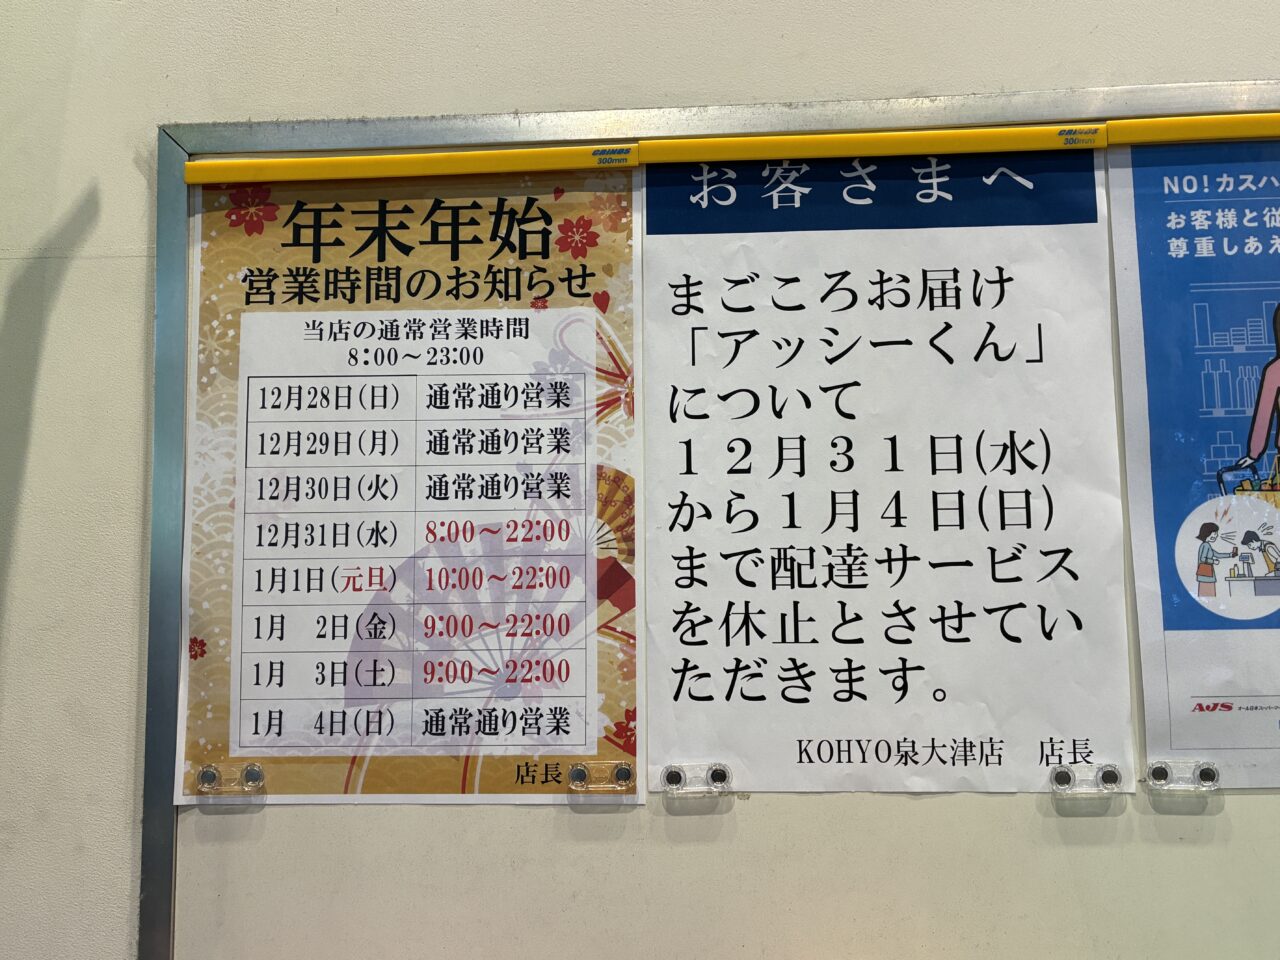 CRINUS
300mm
年末年始
営業時間のお知らせ
当店の通常営業時間
8:00～23:00
12月28日(日) 通常通り営業
12月29日(月) 通常通り営業
12月30日(火) 通常通り営業
12月31日(水) 8:00～22:00
1月1日(元旦) 10:00～22:00
1月 2日(金) 9:00～22:00
1月 3日(土) 9:00～22:00
1月 4日(日) 通常通り営業
店長
CRINUS
300mm
お客さまへ
まごころお届け
「アッシーくん」
について
１２月３１日(水)
から１月４日(日)
まで配達サービス
を休止とさせてい
ただきます。
KOHYO泉大津店 店長
NO!カスハ
お客様と従
尊重しあえ
AJS オール日本スーパーマー